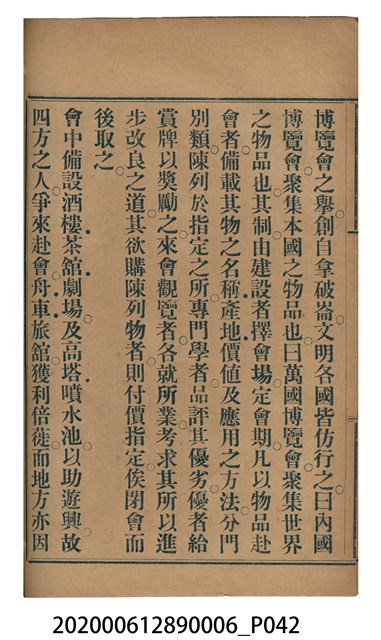 博覽會之舉創自拿破崙文明各國皆仿行之曰內國
博覽會聚集本國之物品也曰萬國博覽會聚集世界
之物品也其制由建設者擇會場定會期凡以物品赴
會者備載其物之名稱產地價値及應用之方法分門
別類陳列於指定之所專門學者品評其優劣優者給
賞牌以奬勵之來會觀覽者各就所業考求其所以進
步改良之道其欲購陳列物者則付價指定俟閉會而
後取之
會中備設酒樓茶館劇場及高塔噴水池以助遊興故
四方之人爭來赴會舟車旅館獲利倍蓰而地方亦因
202000612890006_P042